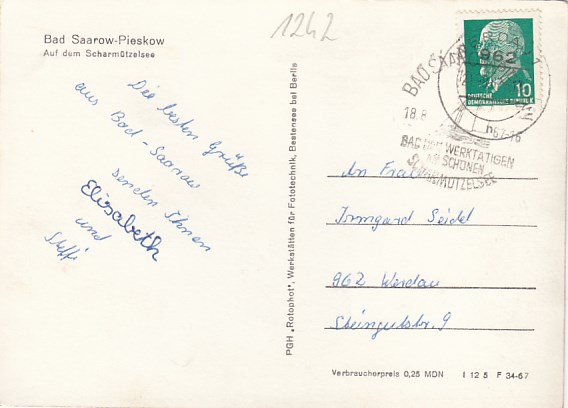 1242
Bad Saarow-Pieskow
Auf dem Scharmützelsee
Die besten Grüße
aus Bad-Saarow
senden Ihnen
Elisabeth
und
Steffi
PGH „Rotophot", Werkstätten für Fototechnik, Bestensee bei Berlin
10
DEUTSCHE
DEMOKRATISCHE REPUBLIK
962
BAD SAAROW
18.8
67-16
BAD DER WERKTÄTIGEN
AM SCHÖNEN
SCHARMÜTZELSEE
An Frau
Irmgard Seidel
962 Werdau
Steingutstr. 9
Verbraucherpreis 0,25 MDN I 12 5 F 34-67